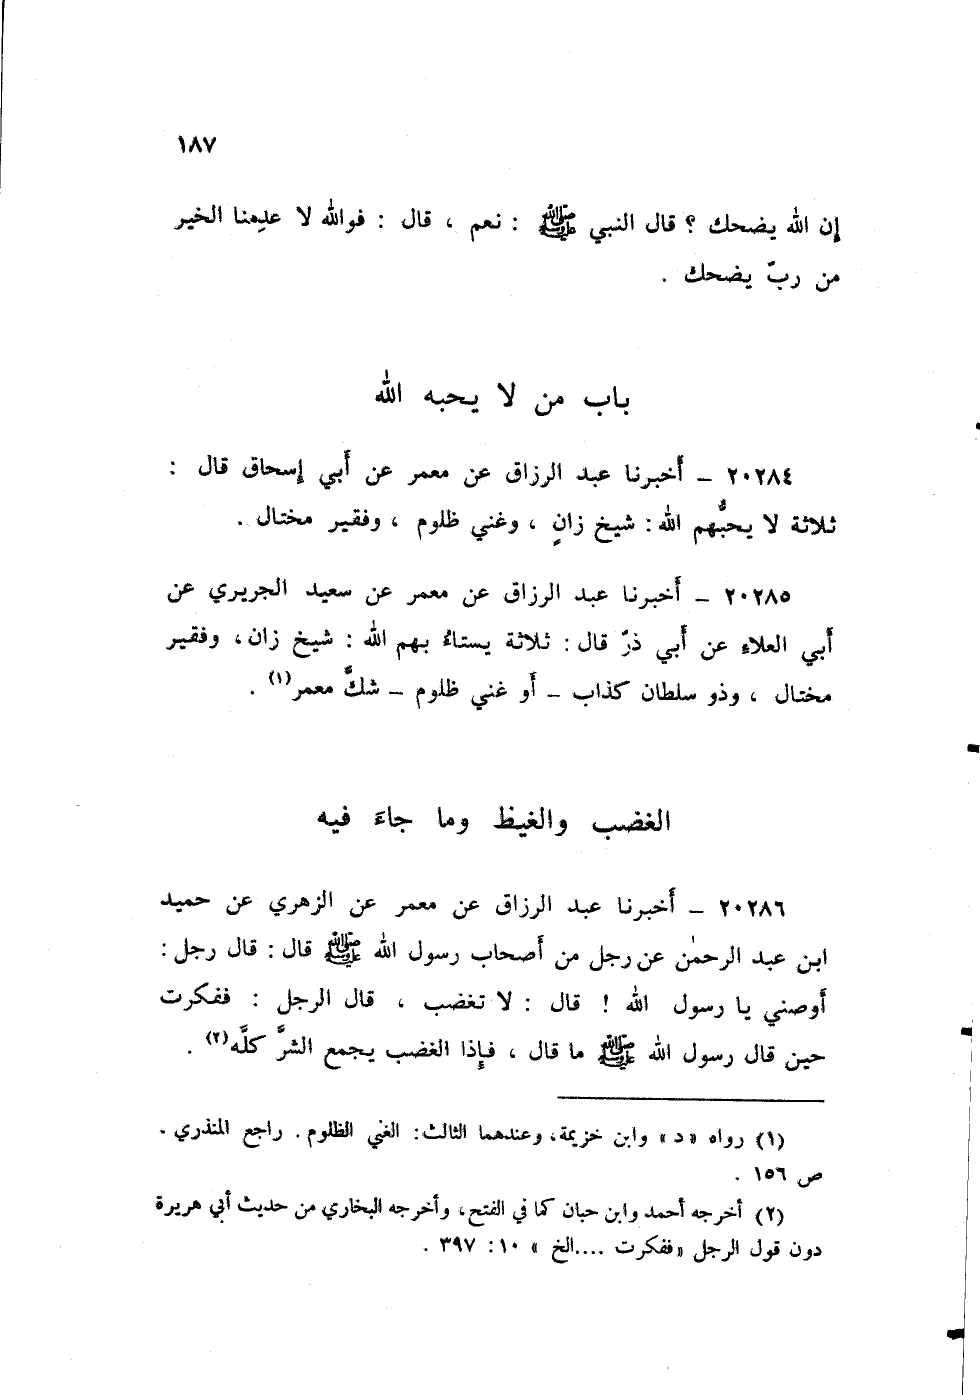 ١٨٧
إن الله يضحك ؟ قال النبي ﷺ : نعم ، قال : فوالله لا عدِمنا الخير
من ربّ يضحك .
باب من لا يحبه الله
٢٠٢٨٤ – أَخبرنا عبد الرزاق عن معمر عن أَبي إسحاق قال :
ثلاثة لا يحبُّهم الله : شيخ زانٍ ، وغني ظلوم ، وفقير مختال .
٢٠٢٨٥ – أَخبرنا عبد الرزاق عن معمر عن سعيد الجريري عن
أَبي العلاءِ عن أَبي ذرّ قال : ثلاثة يستاءُ بهم الله : شيخ زان ، وفقير
مختال ، وذو سلطان كذاب – أَو غني ظلوم – شكَّ معمر(١) .
الغضب والغيظ وما جاءَ فيه
٢٠٢٨٦ – أَخبرنا عبد الرزاق عن معمر عن الزهري عن حميد
ابن عبد الرحمٰن عن رجل من أَصحاب رسول الله ﷺ قال : قال رجل :
أَوصني يا رسول الله ! قال : لا تغضب ، قال الرجل : ففكرت
حين قال رسول الله ﷺ ما قال ، فإِذا الغضب يجمع الشرَّ كلَّه(٢) .
(١) رواه «د» وابن خزيمة، وعندهما الثالث: الغني الظلوم. راجع المنذري .
ص ١٥٦ .
(٢) أخرجه أحمد وابن حبان كما في الفتح، وأخرجه البخاري من حديث أبي هريرة
دون قول الرجل «ففكرت ....الخ » ١٠: ٣٩٧ .